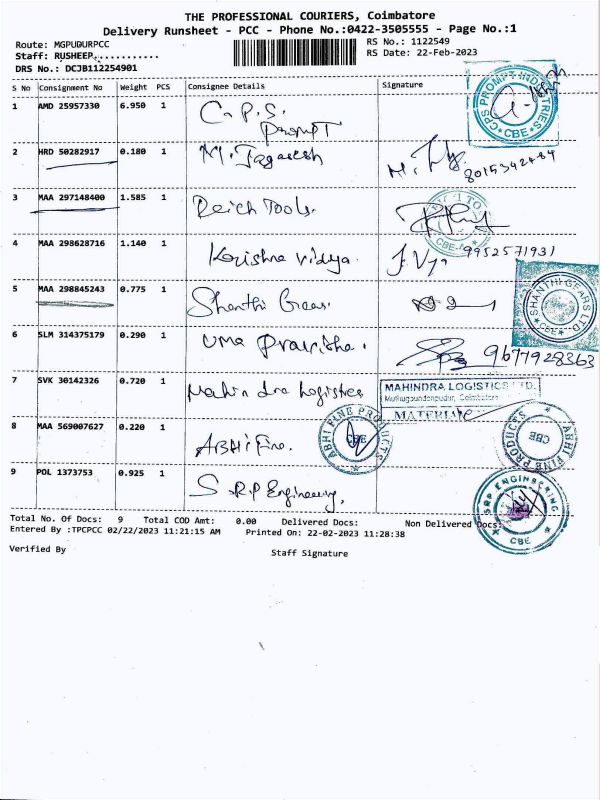 THE PROFESSIONAL COURIERS, Coimbatore
Delivery Runsheet - PCC - Phone No.:0422-3505555 - Page No.:1
Route: MGPUDURPCC RS No.: 1122549
Staff: RUSHEEP............ RS Date: 22-Feb-2023
DRS No.: DCJB112254901
S No Consignment No Weight PCS Consignee Details Signature
CPS PROMPT INDUSTRIES CBE
1 AMD 25957330 6.950 1 C.P.S.
PROMPT
2 HRD 50282917 0.180 1 M. Jagadesh
3 MAA 297148400 1.585 1 Reich Tools.
CBE
4 MAA 298628716 1.140 1 Krishna Vidya. 9952571931
5 MAA 298845243 0.775 1 Shanthi Gears.
SHANTHI GEARS LTD CBE
6 SLM 314375179 0.290 1 Uma 9677928363
7 SVK 30142326 0.720 1 Mahindra Logistics
MAHINDRA LOGISTICS LTD.
Muthugoundenpudur, Coimbatore
MATERIAL
8 MAA 569007627 0.220 1 ABHI Fine.
ABHI FINE PRODUCTS CBE
ABHI FINE PRODUCTS CBE
9 POL 1373753 0.925 1 S.R.P Engineering.
SRP ENGINEERING CBE
Total No. Of Docs: 9 Total COD Amt: 0.00 Delivered Docs: Non Delivered Docs:
Entered By :TPCPCC 02/22/2023 11:21:15 AM Printed On: 22-02-2023 11:28:38
Verified By Staff Signature